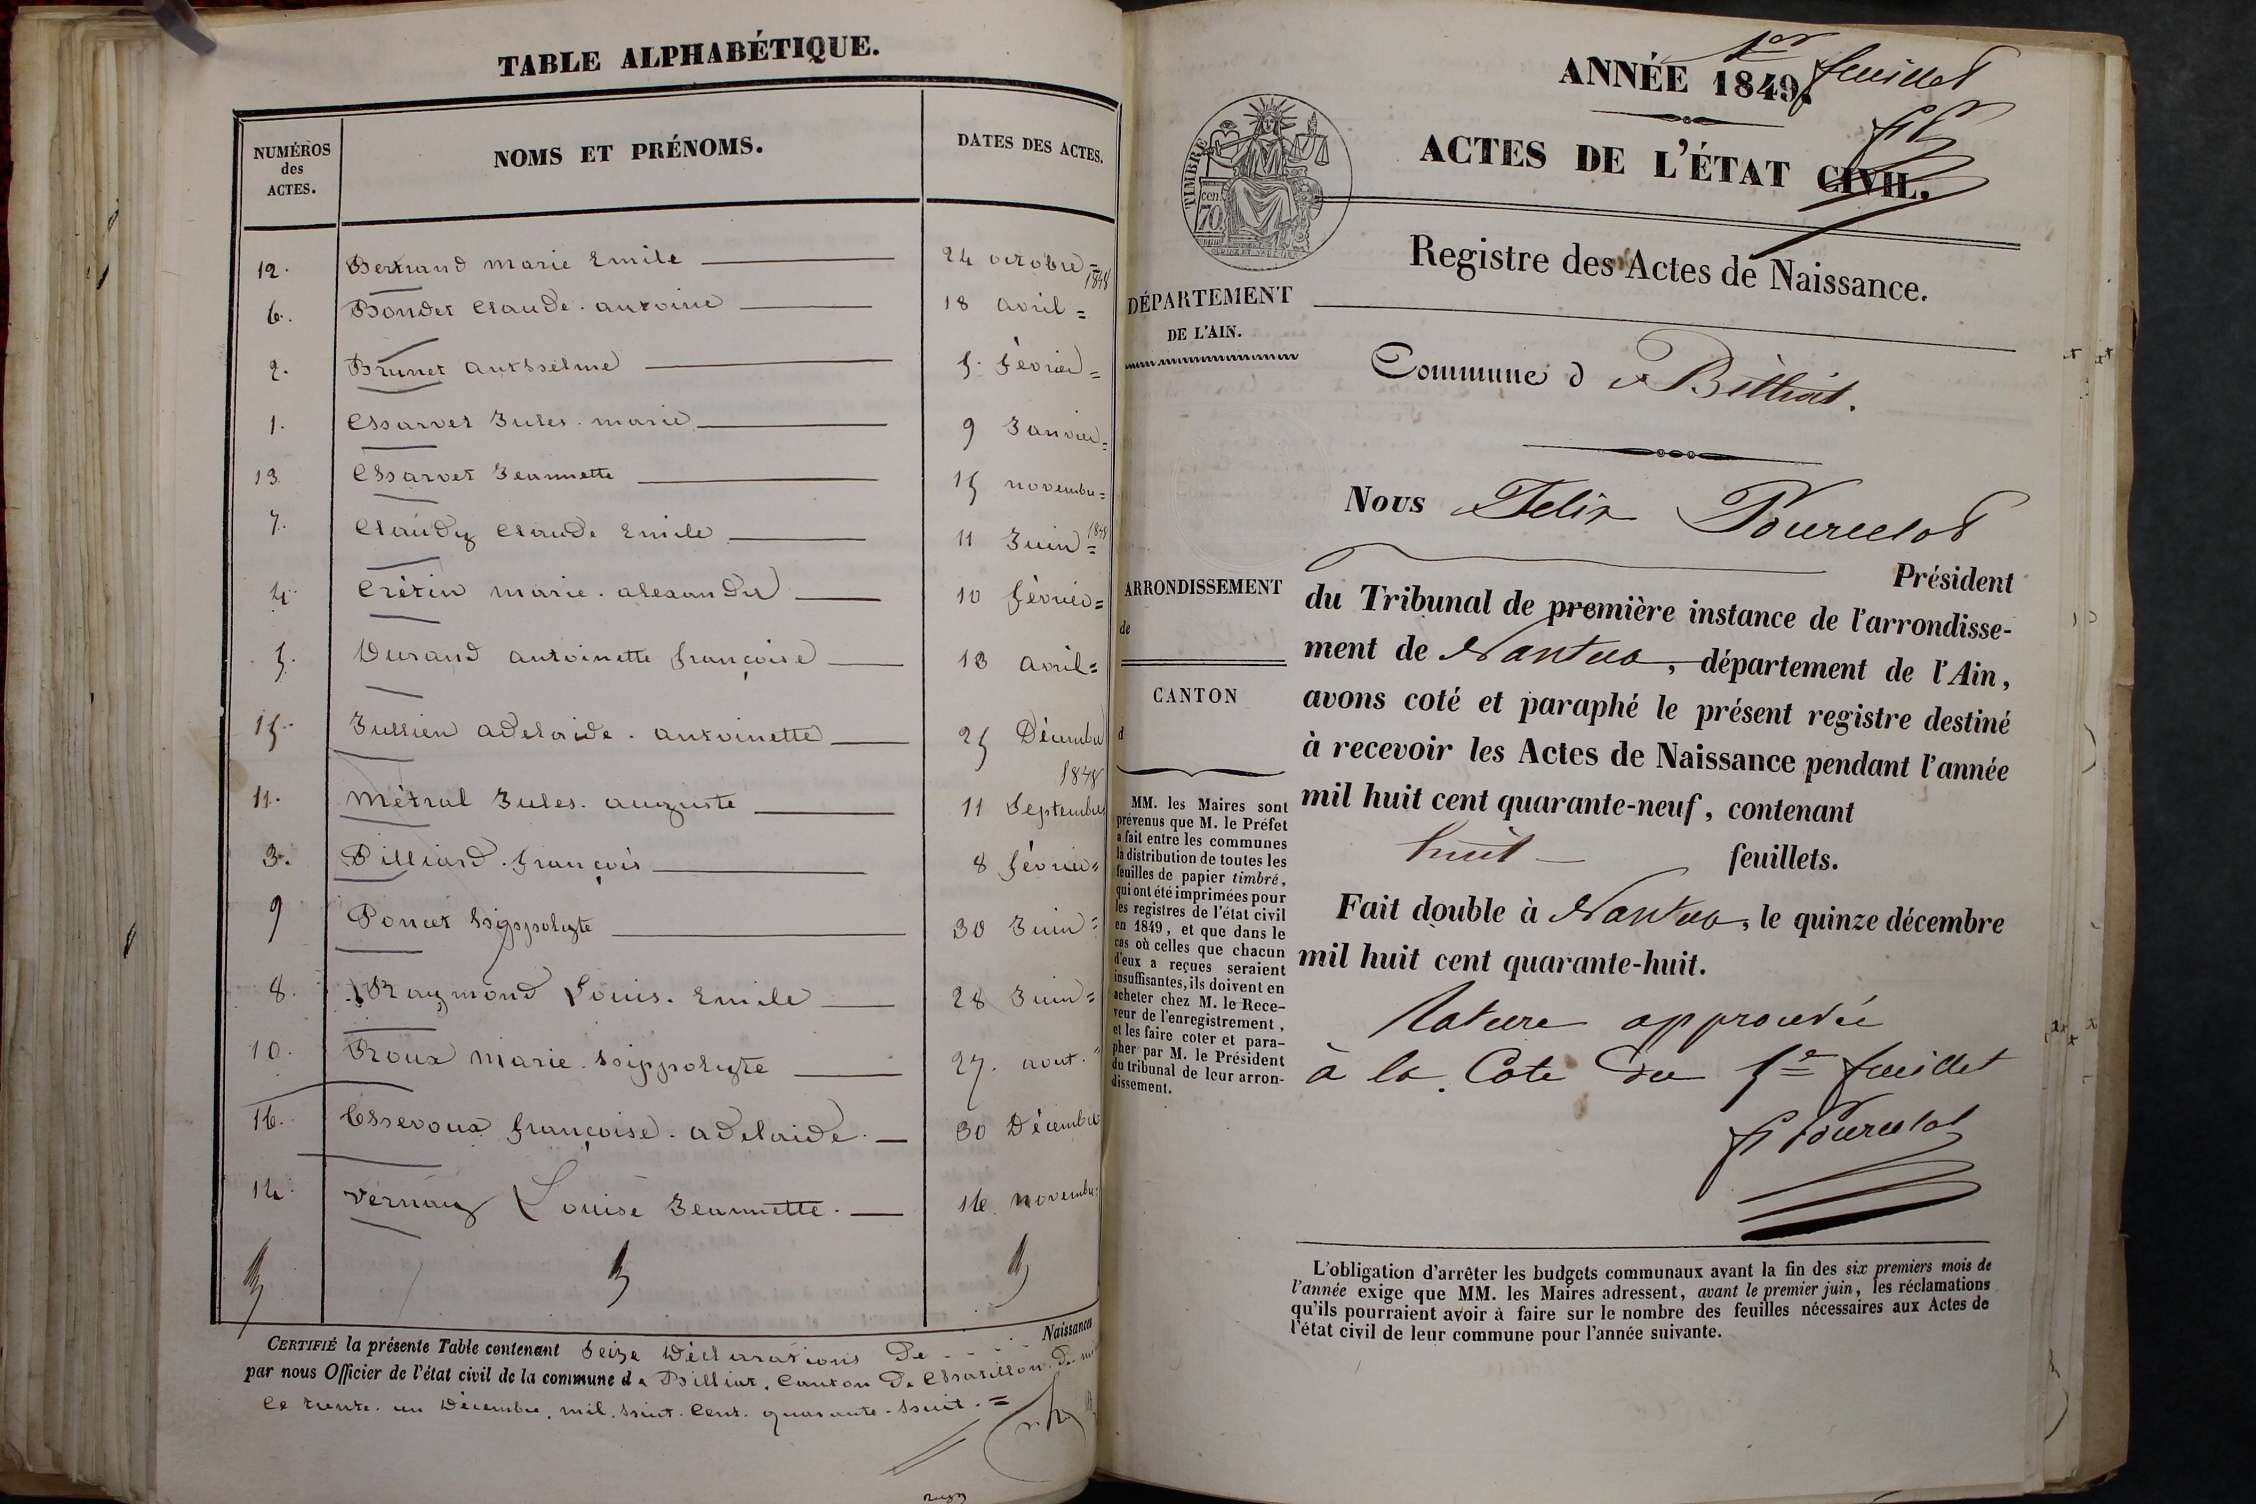 TABLE ALPHABÉTIQUE.
NUMÉROS des ACTES.
NOMS ET PRÉNOMS.
DATES DES ACTES.
12. Bertrand marie Emile 24 octobre = 1848
6. Bondet Claude. antoine 18 avril =
2. Brunet anthelme 5. février =
1. Charvet Jules. marie 9 Janvier =
13 Charvet Jeannette 15 novembre =
7. Claudy Claude Emile 11 Juin = 1848
4. Crétin marie. alexandre 10 février =
5. Durand antoinette françoise 13 avril =
15. Jullien adelaide. antoinette 25 Décembre 1848
11. Métral Jules. auguste 11 Septembre
3. Pilliard. françois 8 février =
9 Poncet hippolyte 30 Juin =
8. Raymond Louis. Emile 28 Juin =
10. Roux Marie. hippolyte 27. aout. =
16. Essevoux françoise. adelaide. 30 Décembre
14. Vernay Louise Jeannette. 16 novembre
CERTIFIÉ la présente Table contenant Seize Déclarations De Naissances
par nous Officier de l'état civil de la commune de Billiat, Canton De Chatillon. De
Ce trente. un Décembre, mil. huit. Cent. quarante. huit. =
1er feuillet
ANNÉE 1849.
ACTES DE L'ÉTAT CIVIL.
TIMBRE
cen
70.
Registre des Actes de Naissance.
DÉPARTEMENT
DE L'AIN.
Commune d e Billiat.
Nous Felix Pourcelot
Président
du Tribunal de première instance de l'arrondisse-
ment de Nantua, département de l'Ain,
avons coté et paraphé le présent registre destiné
à recevoir les Actes de Naissance pendant l'année
mil huit cent quarante-neuf, contenant
huit feuillets.
Fait double à Nantua, le quinze décembre
mil huit cent quarante-huit.
Rature approuvée
à la Cote du 1er feuillet
F Pourcelot
ARRONDISSEMENT
de
CANTON
d
MM. les Maires sont
prévenus que M. le Préfet
a fait entre les communes
la distribution de toutes les
feuilles de papier timbré,
qui ont été imprimées pour
les registres de l'état civil
en 1849, et que dans le
cas où celles que chacun
d'eux a reçues seraient
insuffisantes, ils doivent en
acheter chez M. le Rece-
veur de l'enregistrement,
et les faire coter et para-
pher par M. le Président
du tribunal de leur arron-
dissement.
L'obligation d'arrêter les budgets communaux avant la fin des six premiers mois de
l'année exige que MM. les Maires adressent, avant le premier juin, les réclamations
qu'ils pourraient avoir à faire sur le nombre des feuilles nécessaires aux Actes de
l'état civil de leur commune pour l'année suivante.